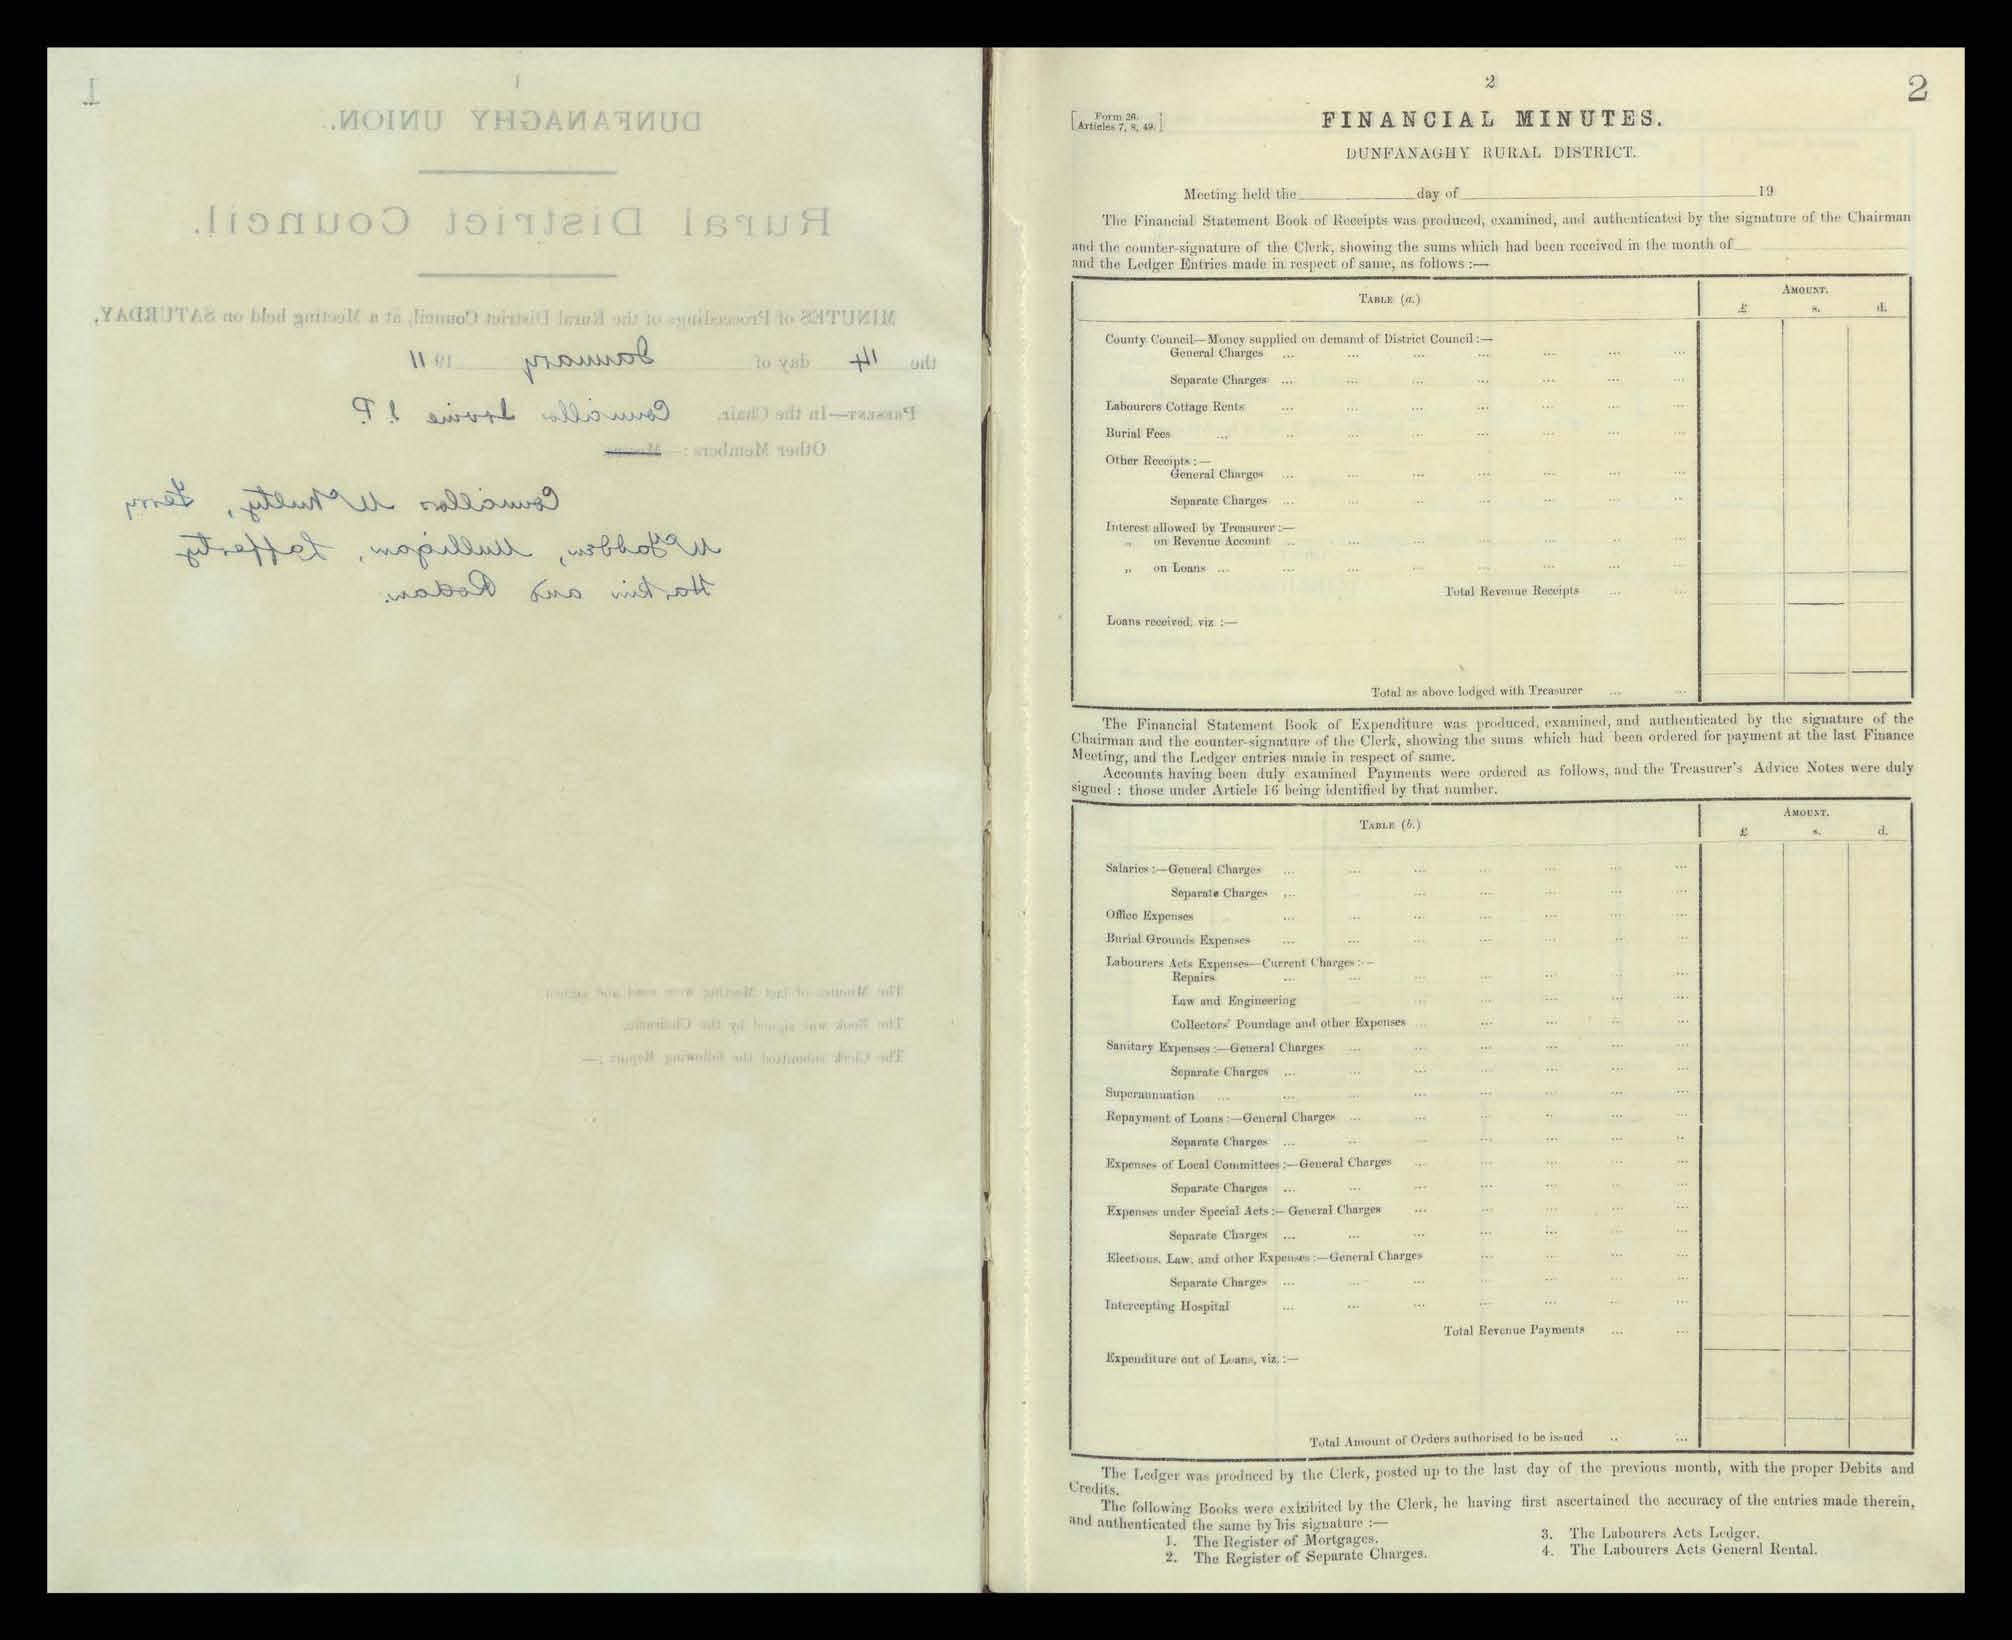 1
1
DUNFANAGHY UNION.
Rural District Council.
MINUTES of Proceedings of the Rural District Council, at a Meeting held on SATURDAY,
the 14 day of January 1911
PRESENT—In the Chair, Councillor Irvine J.P.
Other Members:—
Councillors McNulty, Ferry
McFadden, Mulligan, Lafferty
Harkin and Rodan.
The Minutes of last Meeting were read and signed.
The Book was signed by the Chairman.
The Clerk submitted the following Report :—
2
2
[Form 26. Articles 7, 8, 49.]
FINANCIAL MINUTES.
DUNFANAGHY RURAL DISTRICT.
Meeting held the day of 19
The Financial Statement Book of Receipts was produced, examined, and authenticated by the signature of the Chairman
and the counter-signature of the Clerk, showing the sums which had been received in the month of
and the Ledger Entries made in respect of same, as follows :—
TABLE (a.) AMOUNT.
£ s. d.
County Council—Money supplied on demand of District Council :—
General Charges ... ... ... ... ... ... ...
Separate Charges ... ... ... ... ... ... ...
Labourers Cottage Rents ... ... ... ... ... ... ...
Burial Fees ... ... ... ... ... ... ... ...
Other Receipts :—
General Charges ... ... ... ... ... ... ...
Separate Charges ... ... ... ... ... ... ...
Interest allowed by Treasurer :—
„ on Revenue Account ... ... ... ... ... ... ...
„ on Loans ... ... ... ... ... ... ... ...
Total Revenue Receipts ... ...
Loans received, viz :—
Total as above lodged with Treasurer ... ...
The Financial Statement Book of Expenditure was produced, examined, and authenticated by the signature of the
Chairman and the counter-signature of the Clerk, showing the sums which had been ordered for payment at the last Finance
Meeting, and the Ledger entries made in respect of same.
Accounts having been duly examined Payments were ordered as follows, and the Treasurer's Advice Notes were duly
signed : those under Article 16 being identified by that number.
TABLE (b.) AMOUNT.
£ s. d.
Salaries :—General Charges ... ... ... ... ... ... ...
Separate Charges ... ... ... ... ... ...
Office Expenses ... ... ... ... ... ... ...
Burial Grounds Expenses ... ... ... ... ... ... ...
Labourers Acts Expenses—Current Charges :—
Repairs ... ... ... ... ... ... ...
Law and Engineering ... ... ... ... ...
Collectors' Poundage and other Expenses ... ... ... ... ...
Sanitary Expenses :—General Charges ... ... ... ... ... ...
Separate Charges ... ... ... ... ... ... ...
Superannuation ... ... ... ... ... ... ... ...
Repayment of Loans :—General Charges ... ... ... ... ... ...
Separate Charges ... ... ... ... ... ... ...
Expenses of Local Committees :—General Charges ... ... ... ... ...
Separate Charges ... ... ... ... ... ... ...
Expenses under Special Acts :—General Charges ... ... ... ... ...
Separate Charges ... ... ... ... ... ... ...
Elections, Law, and other Expenses :—General Charges ... ... ... ...
Separate Charges ... ... ... ... ... ... ...
Intercepting Hospital ... ... ... ... ... ... ...
Total Revenue Payments ... ...
Expenditure out of Loans, viz. :—
Total Amount of Orders authorised to be issued .. ...
The Ledger was produced by the Clerk, posted up to the last day of the previous month, with the proper Debits and
Credits.
The following Books were exhibited by the Clerk, he having first ascertained the accuracy of the entries made therein,
and authenticated the same by his signature :—
1. The Register of Mortgages. 3. The Labourers Acts Ledger.
2. The Register of Separate Charges. 4. The Labourers Acts General Rental.